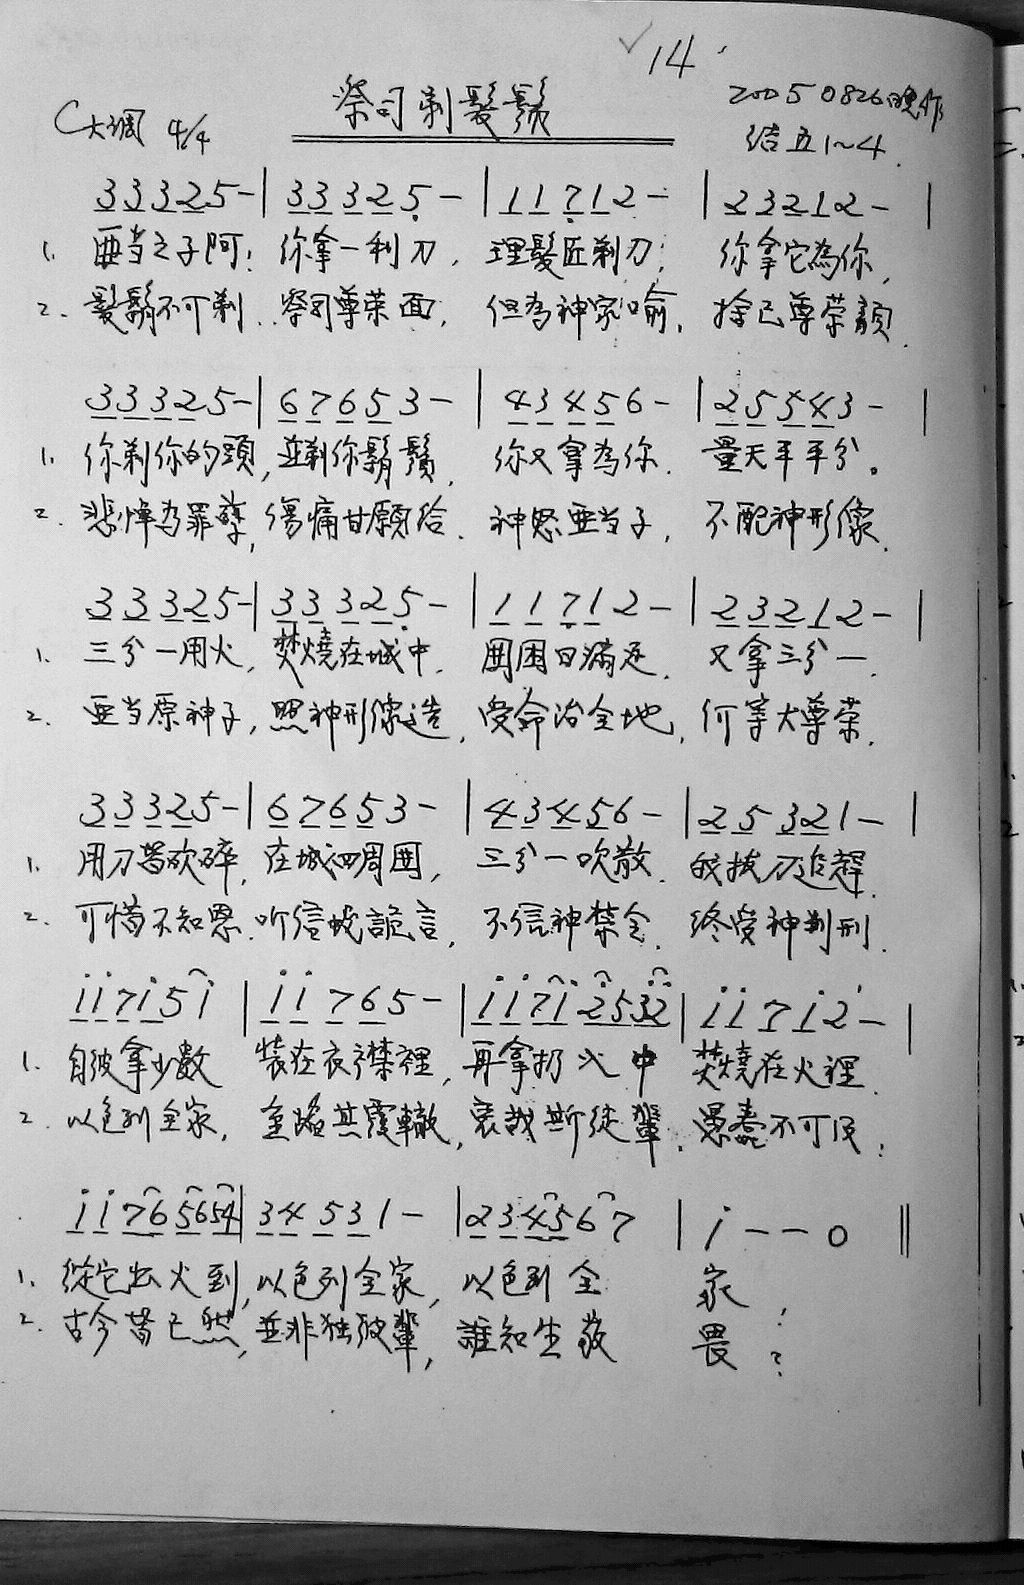 14
祭司剃髮鬚
20050826晚作
C大調 4/4
結五1~4.
33325-| 33325- |11712- |23212- |
1. 亜当之子阿! 你拿一利刀, 理髮匠剃刀; 你拿它為你,
2. 髮鬍不可剃, 祭司尊荣面, 但為神家喻, 捨己尊荣顏.
33325-|67653- |43456- |25543- |
1. 你剃你的頭, 並剃你鬍鬚, 你又拿為你, 量天平平分。
2. 悲悼為罪孽, 傷痛甘願给. 神怒亜当子, 不配神形像.
33325-|33325- |11712- |23212- |
1. 三分一用火, 焚燒在城中, 围困日滿足, 又拿三分一,
2. 亜当原神子, 照神形像造, 受命治全地, 何等大尊荣.
33325-|67653- |43456- |25321- |
1. 用刀砍碎, 在城四周围, 三分一吹散, 我拔刀追趕.
2. 可惜不知恩, 听信蛇詭言, 不信神禁令, 终受神判刑.
117151 |11765- |1171 2532 |11712- |
1. 自彼拿少數 裝在衣襟裡, 再拿扔火中 焚燒在火裡
2. 以色列全家, 重蹈其覆轍, 哀哉斯徒輩, 愚蠢不可及;
1176 5654|34531- |2345 67 | 1--0 ‖
1. 從它出火到, 以色列全家, 以色列全 家;
2. 古今皆已然, 並非独彼輩, 誰知生敬 畏?